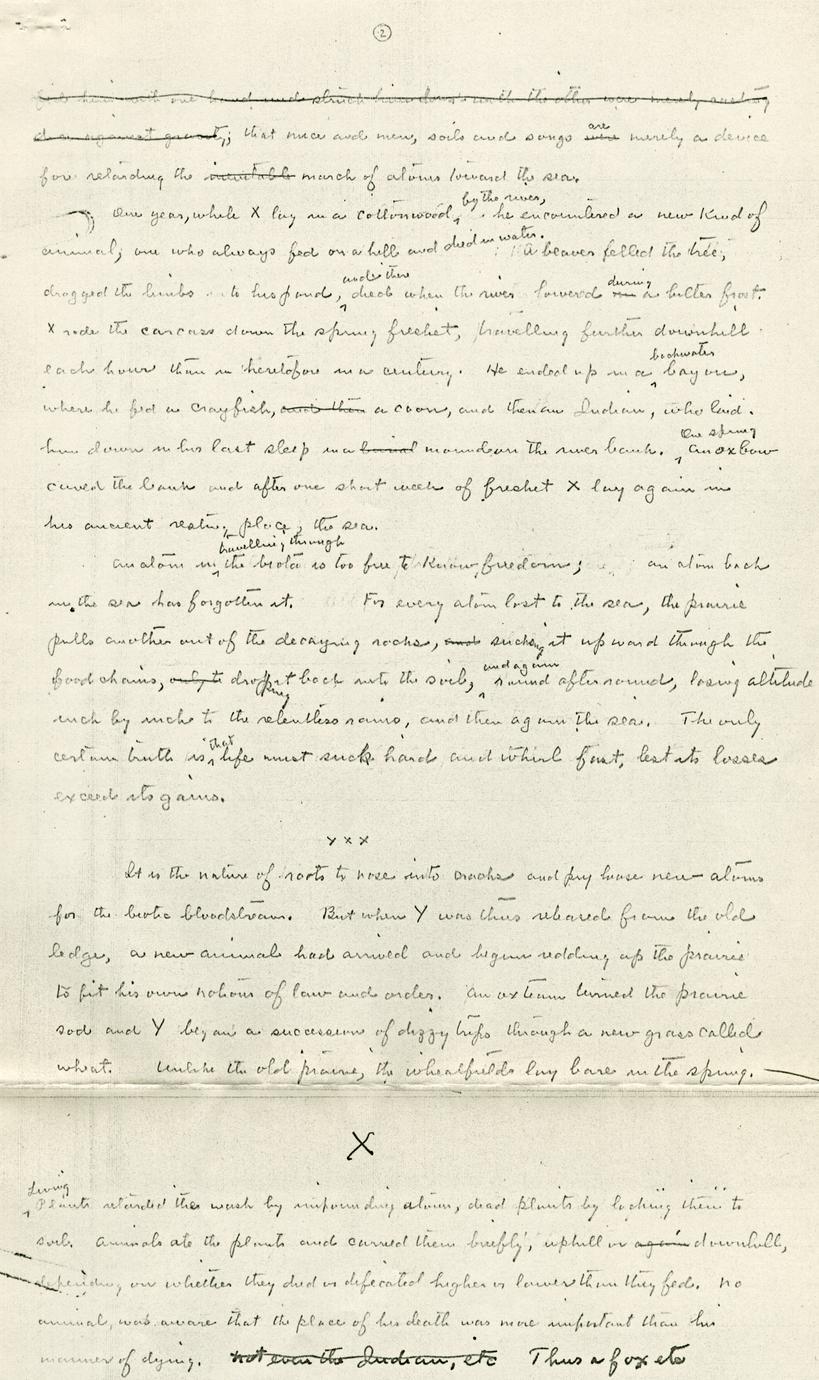 ②
fed him with one hand and struck him down with the other were merely resting
down against gravity; that mice and men, soils and songs were are merely a device
for retarding the inevitable march of atoms toward the sea.
One year, while X lay in a cottonwood by the river, he encountered a new kind of
animal; one who always fed on a hill and died in water. A beaver felled the tree,
dragged the limbs into his pond, and there died when the river lowered in during a bitter frost.
X rode the carcass down the spring freshet, travelling further downhill
each hour than in heretofore in a century. He ended up in a backwater bayou,
where he fed a crayfish, and then a coon, and then an Indian, who laid
him down in his last sleep in a burial mound on the river bank. One spring an oxbow
caved the bank and after one short week of freshet X lay again in
his ancient resting place, the sea.
An atom in travelling through the biota is too free to know freedom; an atom back
in the sea has forgotten it. For every atom lost to the sea, the prairie
pulls another out of the decaying rocks, and sucking it upward through the
food chains, only to dropping it back into the soil, and again round after round, losing altitude
inch by inch to the relentless rains, and then again the sea. The only
certain truth is that life must suck hard and whirl fast, lest its losses
exceed its gains.
x x x
It is the nature of roots to nose into cracks and pry loose new atoms
for the biotic bloodstream. But when Y was thus released from the old
ledge, a new animal had arrived and begun redding up the prairie
to fit his own notions of law and order. An ox team turned the prairie
sod and Y began a succession of dizzy trips through a new grass called
wheat. Unlike the old prairie, the wheatfields lay bare in the spring.
X
Living Plants retarded the wash by impounding atoms, dead plants by locking them to
soil. Animals ate the plants and carried them briefly, uphill or again downhill,
depending on whether they died or defecated higher or lower than they fed. No
animal, was aware that the place of his death was more important than his
manner of dying. not even the Indian, etc Thus a fox etc